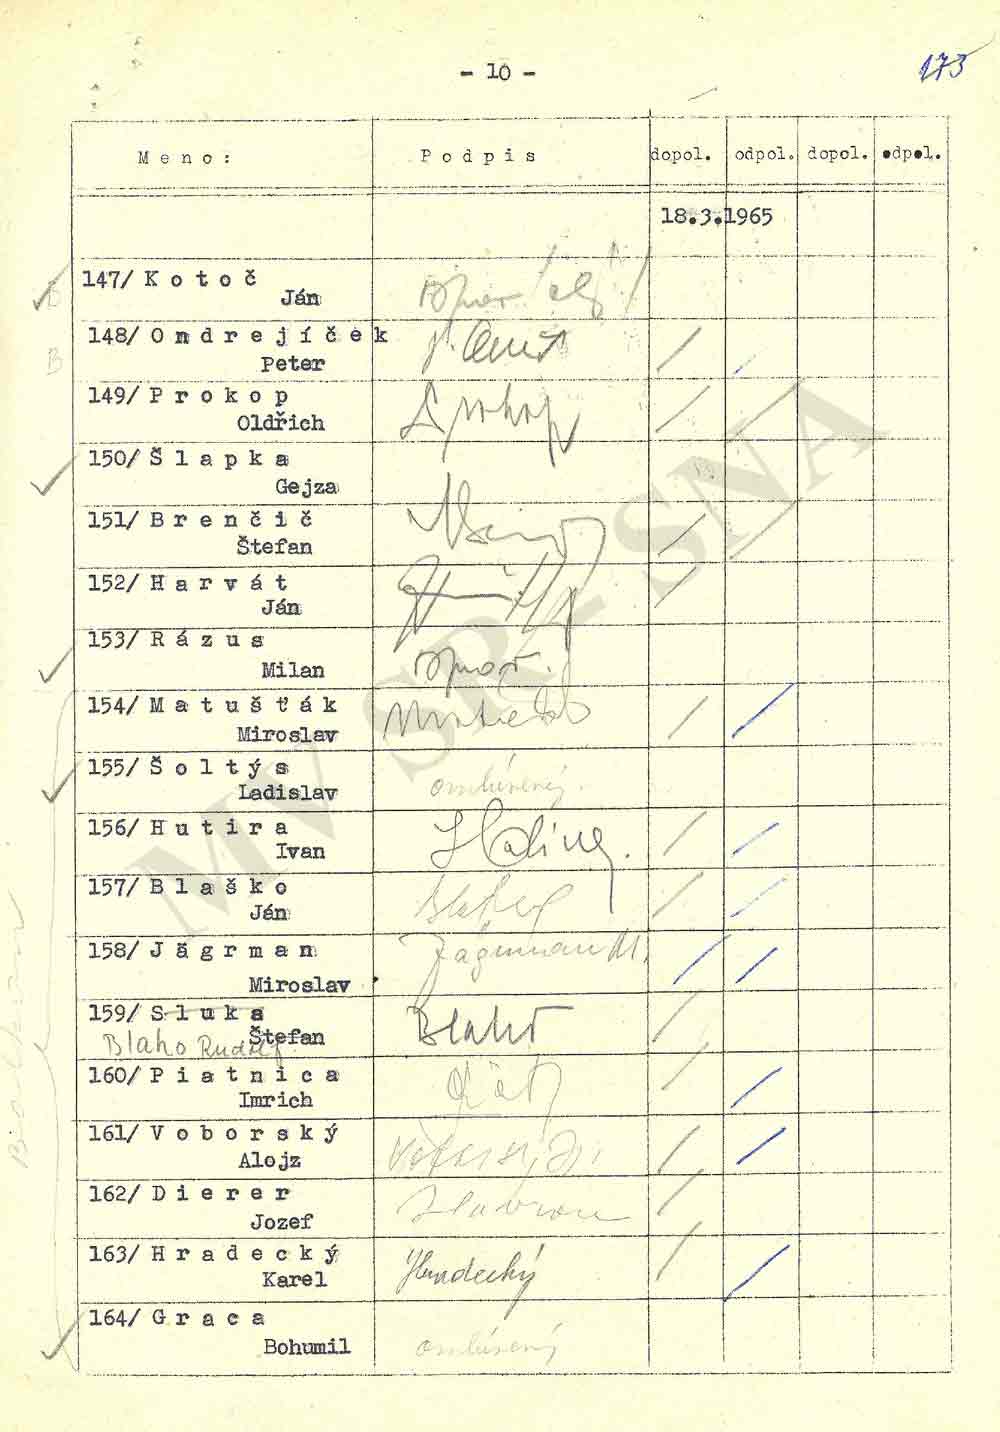 - 10 -
173
Meno: Podpis dopol. odpol. dopol. odpol.
18.3.1965
147/ Kotoč
Ján
148/ Ondrejíček
B
Peter
149/ Prokop
Oldřich
150/ Šlapka
Gejza
151/ Brenčič
Štefan
152/ Harvát
Ján
153/ Rázus
Milan
154/ Matušťák
Miroslav
155/ Šoltýs
Ladislav
156/ Hutira
Ivan
157/ Blaško
Ján
158/ Jägrman Jägrman M.
Miroslav
159/ Sluka
Štefan Blaho
Blaho Rudolf
160/ Piatnica
Imrich
161/ Voborský
Alojz
162/ Dierer
Jozef
163/ Hradecký
Karel Hradecký
164/ Graca
Bohumil
MV SR - SNA